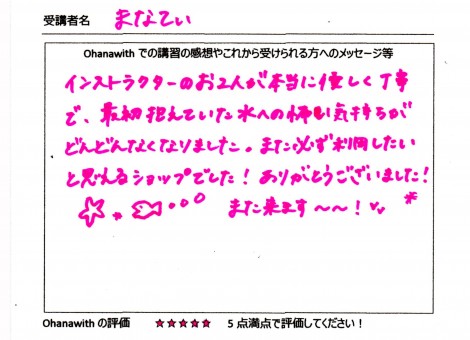 受講者名 まなてぃ
Ohanawith での講習の感想やこれから受けられる方へのメッセージ等
インストラクターのお2人が本当に優しく丁寧
で、最初抱えていた水への怖い気持ちが
どんどんなくなりました。また必ず利用したい
と思えるショップでした！ありがとうございました！
また来ます〜〜！
Ohanawith の評価 ★★★★★ 5 点満点で評価してください！